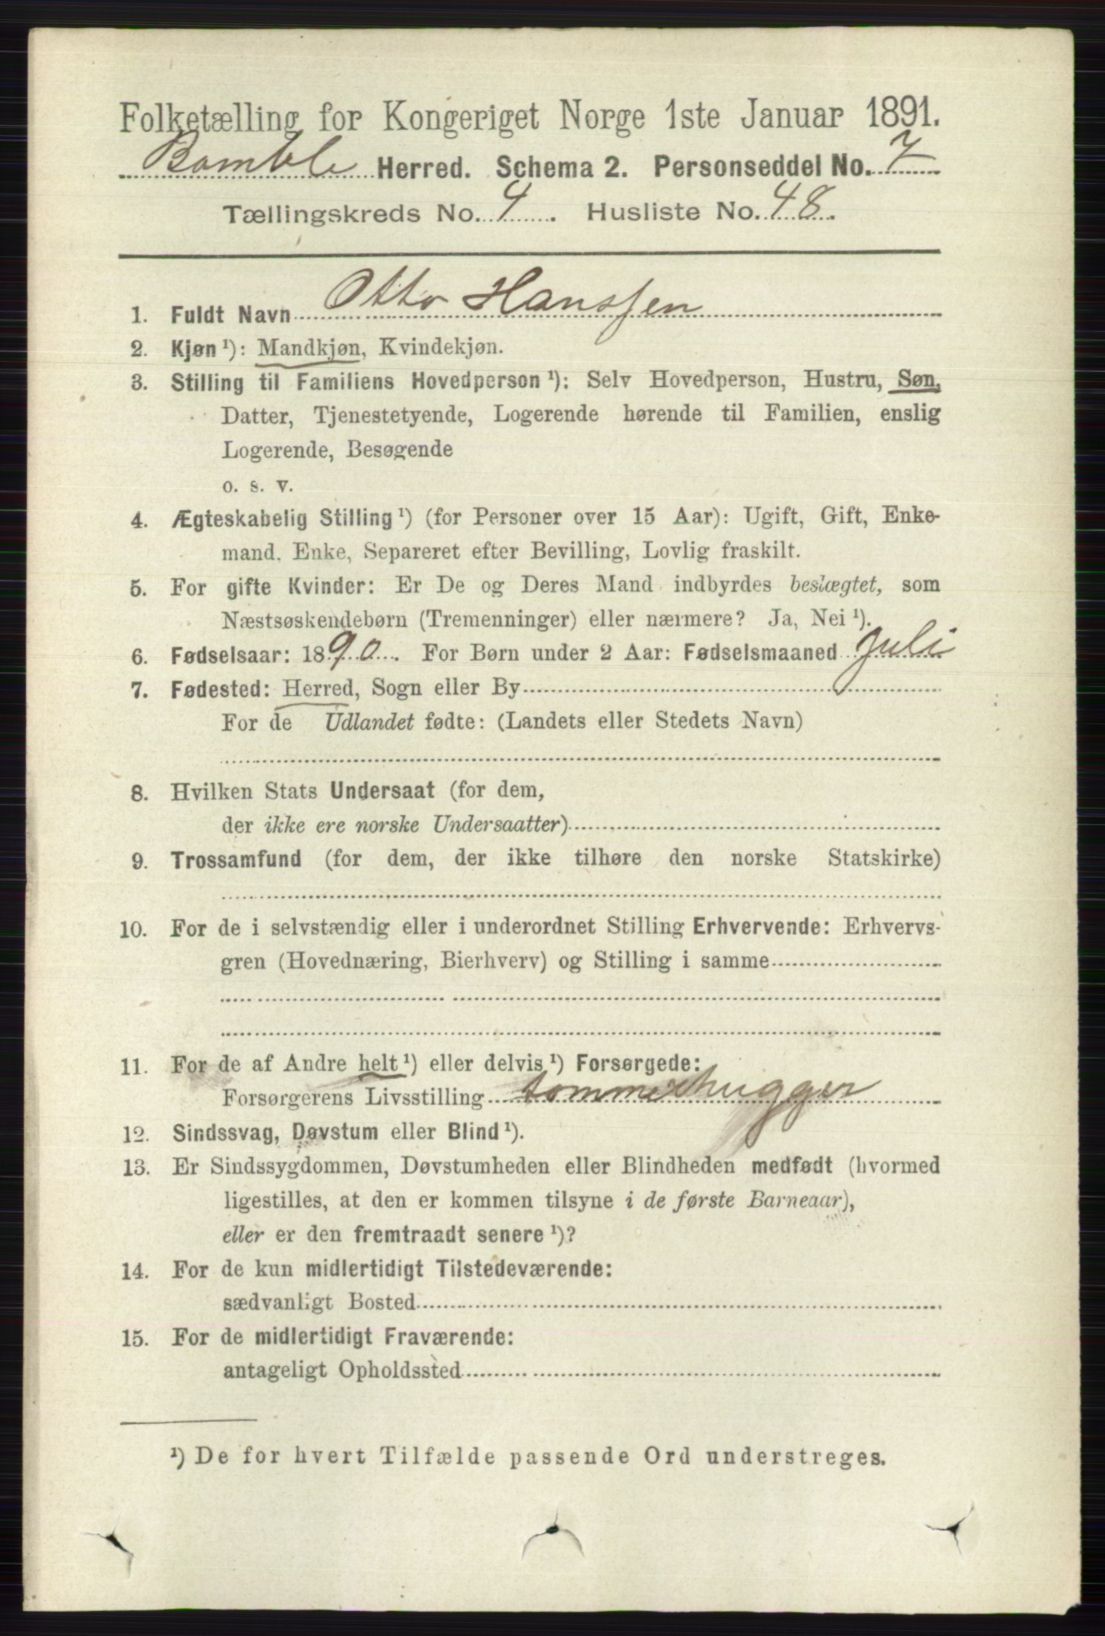 Folketælling for Kongeriget Norge 1ste Januar 1891.
Bamble Herred. Schema 2. Personseddel No. 7
Tællingskreds No. 4. Husliste No. 48.
1. Fuldt Navn Otto Hanssen
2. Kjøn ¹): Mandkjøn, Kvindekjøn.
3. Stilling til Familiens Hovedperson ¹): Selv Hovedperson, Hustru, Søn,
Datter, Tjenestetyende, Logerende hørende til Familien, enslig
Logerende, Besøgende
o. s. v.
4. Ægteskabelig Stilling ¹) (for Personer over 15 Aar): Ugift, Gift, Enke-
mand, Enke, Separeret efter Bevilling, Lovlig fraskilt.
5. For gifte Kvinder: Er De og Deres Mand indbyrdes beslægtet, som
Næstsøskendebørn (Tremenninger) eller nærmere? Ja, Nei ¹).
6. Fødselsaar: 1890. For Børn under 2 Aar: Fødselsmaaned Juli
7. Fødested: Herred, Sogn eller By
For de Udlandet fødte: (Landets eller Stedets Navn)
8. Hvilken Stats Undersaat (for dem,
der ikke ere norske Undersaatter)
9. Trossamfund (for dem, der ikke tilhøre den norske Statskirke)
10. For de i selvstændig eller i underordnet Stilling Erhvervende: Erhvervs-
gren (Hovednæring, Bierhverv) og Stilling i samme
11. For de af Andre helt ¹) eller delvis ¹) Forsørgede:
Forsørgerens Livsstilling tømmerhugger
12. Sindssvag, Døvstum eller Blind ¹).
13. Er Sindssygdommen, Døvstumheden eller Blindheden medfødt (hvormed
ligestilles, at den er kommen tilsyne i de første Barneaar),
eller er den fremtraadt senere ¹)?
14. For de kun midlertidigt Tilstedeværende:
sædvanligt Bosted
15. For de midlertidigt Fraværende:
antageligt Opholdssted
¹) De for hvert Tilfælde passende Ord understreges.